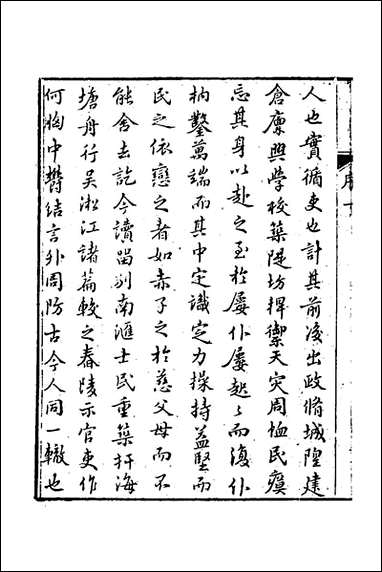 序
人也實循吏也計其前後出政脩城隍建
倉廩興學校築隄坊捍禦天灾周恤民瘼
忘其身以赴之至於屢仆屢起々而復仆
枘鑿萬端而其中定識定力操持益堅而
民之依戀之者如赤子之於慈父母而不
能舍去訖今讀留别南滙士民重築捍海
塘舟行吴淞江諸篇較之舂陵示官吏作
何胸中欝結言外周防古今人同一轍也